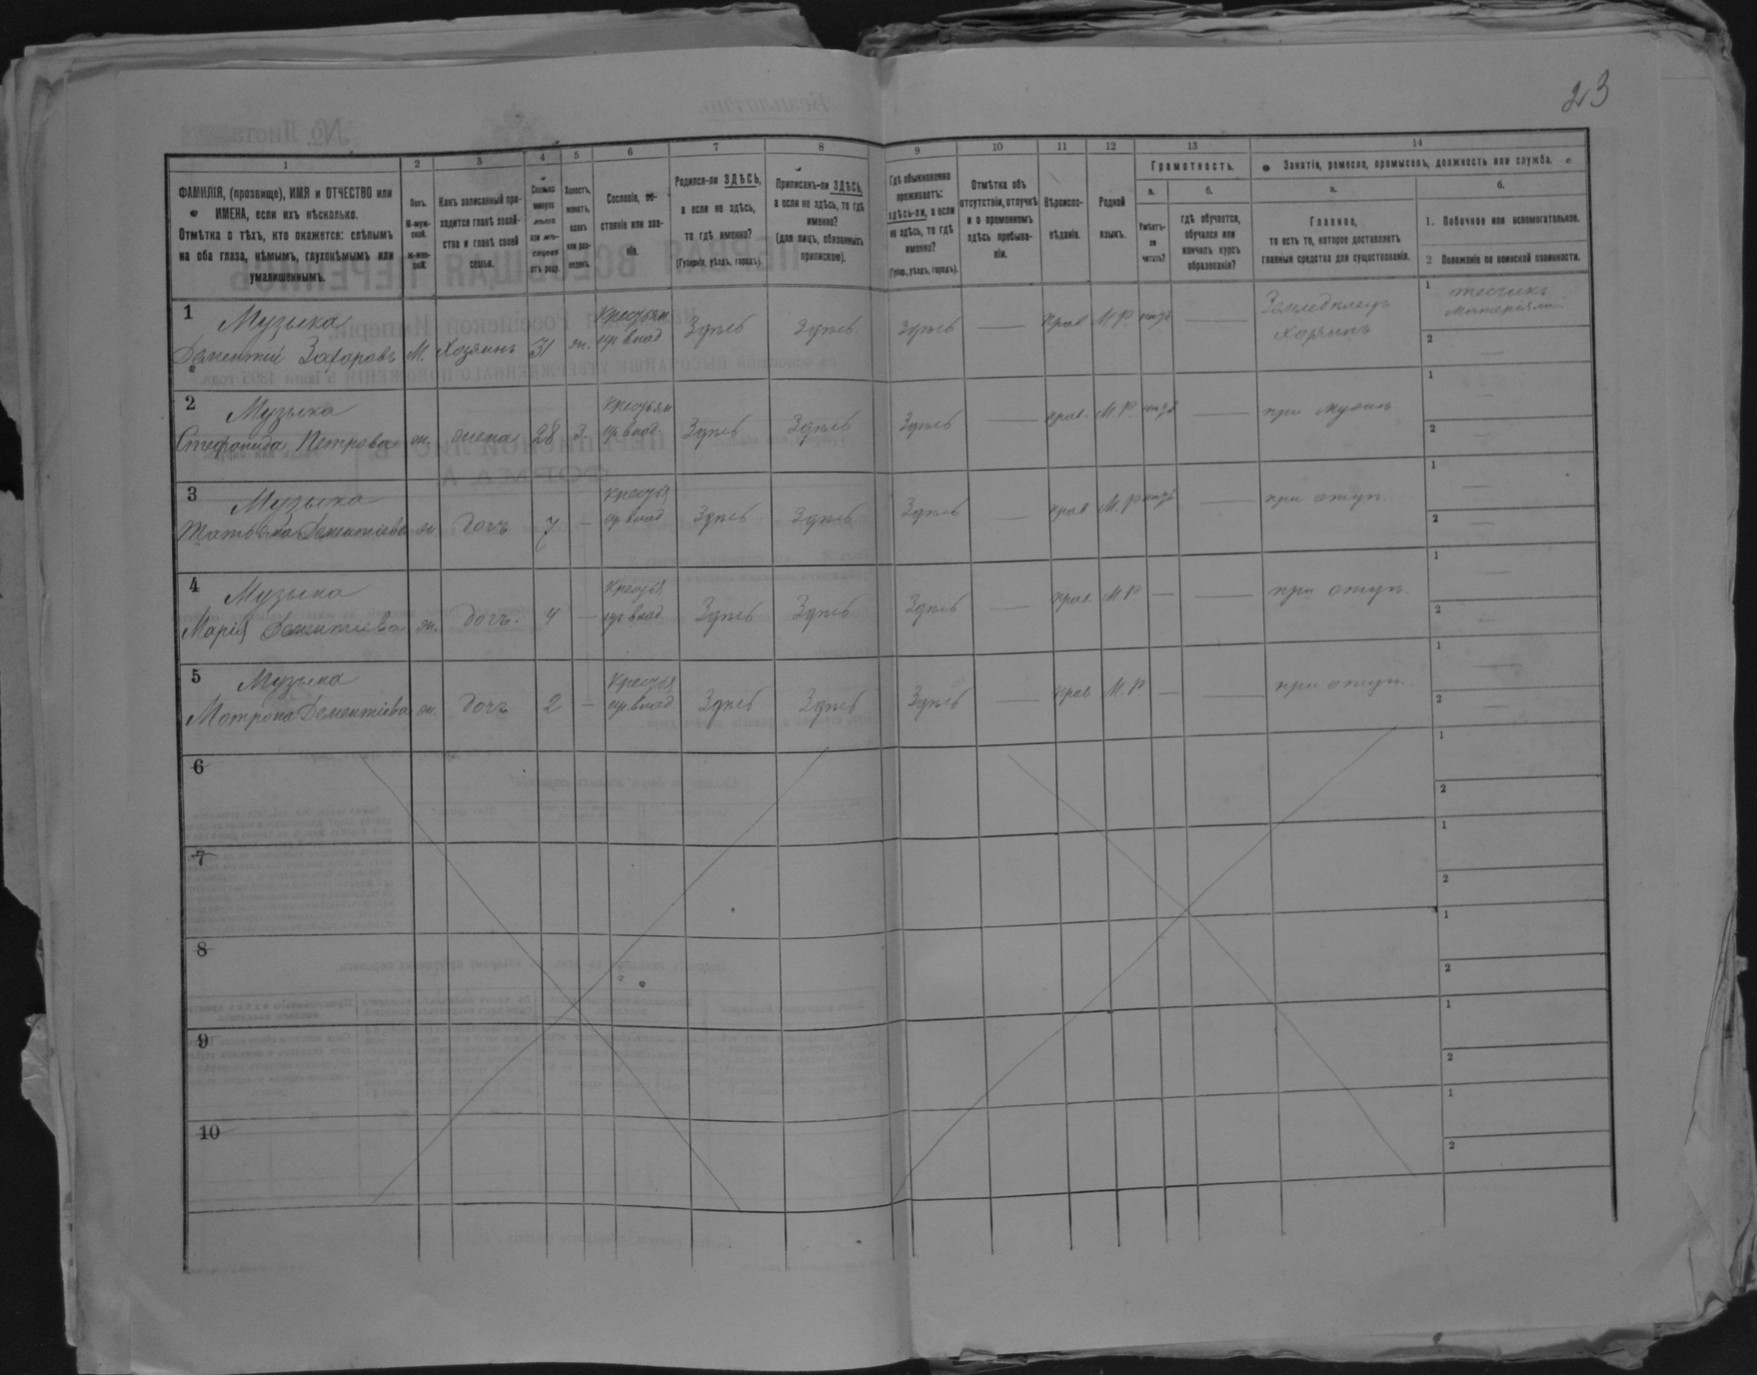 23
1 2 3 4 5 6 7 8 9 10 11 12 13 14
ФАМИЛІЯ, (прозвище), ИМЯ и ОТЧЕСТВО или
ИМЕНА, если ихъ нѣсколько.
Отмѣтка о тѣхъ, кто окажется: слѣпымъ
на оба глаза, нѣмымъ, глухонѣмымъ или
умалишеннымъ.
Полъ.
М-муж-
ской.
Ж-жен-
скій.
Какъ записанный при-
ходится главѣ хозяй-
ства и главѣ своей
семьи.
Сколько
минуло
лѣтъ
или мѣ-
сяцевъ
отъ роду.
Холостъ,
женатъ,
вдовъ
или раз-
веденъ.
Сословіе, со-
стояніе или зва-
ніе.
Родился-ли ЗДѢСЬ,
а если не здѣсь,
то гдѣ именно?
(Губернія, уѣздъ, городъ).
Приписанъ-ли ЗДѢСЬ,
а если не здѣсь, то гдѣ
именно?
(для лицъ, обязанныхъ
припискою).
Гдѣ обыкновенно
проживаетъ:
здѣсь-ли, а если
не здѣсь, то гдѣ
именно?
(Губер., уѣздъ, городъ).
Отмѣтка объ
отсутствіи, отлучкѣ
и о временномъ
здѣсь пребыва-
ніи.
Вѣроиспо-
вѣданіе.
Родной
языкъ.
Грамотность.
а.
Умѣетъ-
ли
читать?
б.
гдѣ обучается,
обучался или
кончилъ курсъ
образованія?
Занятіе, ремесло, промыселъ, должность или служба.
а.
Главное,
то есть то, которое доставляетъ
главныя средства для существованія.
б.
1. Побочное или вспомогательное.
2 Положеніе по воинской повинности.
1 Музыка
Дементій Захаровъ М. Хозяинъ 31 ж. Крестьян Здѣсь Здѣсь Здѣсь — Прав М.Р. Земледѣлецъ
Хозяинъ
1
2 —
2 Музыка
Стефанида Петрова ж. жена 28 З. Крестьян Здѣсь Здѣсь Здѣсь — прав. М.Р — при мужѣ
1 —
2 —
3 Музыка
Дементіева ж дочь 7 — Крестья Здѣсь Здѣсь Здѣсь — прав М.Р — при отцѣ
1 —
2 —
4 Музыка
Марія Дементіева ж. дочь. 4 — Крестья Здѣсь Здѣсь Здѣсь — прав М Р — — при отцѣ
1 —
2 —
5 Музыка
Мотрона Дементіева ж дочь 2 — Крестья Здѣсь Здѣсь Здѣсь — прав М.Р — — при отцѣ
1 —
2 —
6
1
2
7
1
2
8
1
2
9
1
2
10
1
2